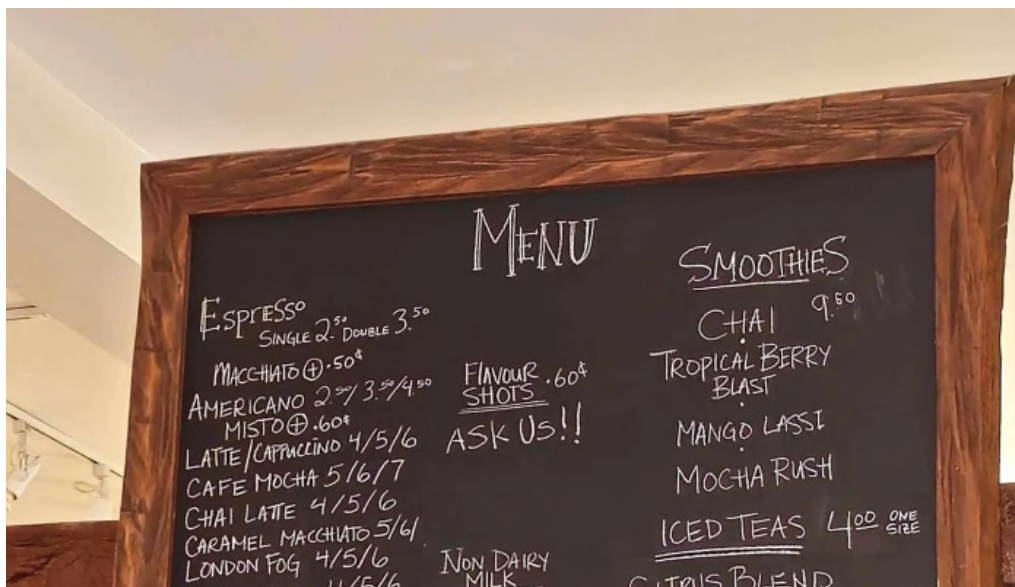 MENU
ESPRESSO
SINGLE 2.50 DOUBLE 3.50
MACCHIATO ⊕ .50¢
AMERICANO 2.50/3.50/4.50
MISTO ⊕ .60¢
LATTE/CAPPUCCINO 4/5/6
CAFE MOCHA 5/6/7
CHAI LATTE 4/5/6
CARAMEL MACCHIATO 5/6/
LONDON FOG 4/5/6
4/5/6
FLAVOUR SHOTS .60¢
ASK US!!
NON DAIRY
MILK
SMOOTHIES
9.50
CHAI
TROPICAL BERRY
BLAST
MANGO LASSI
MOCHA RUSH
ICED TEAS 4.00 ONE SIZE
CITRUS BLEND